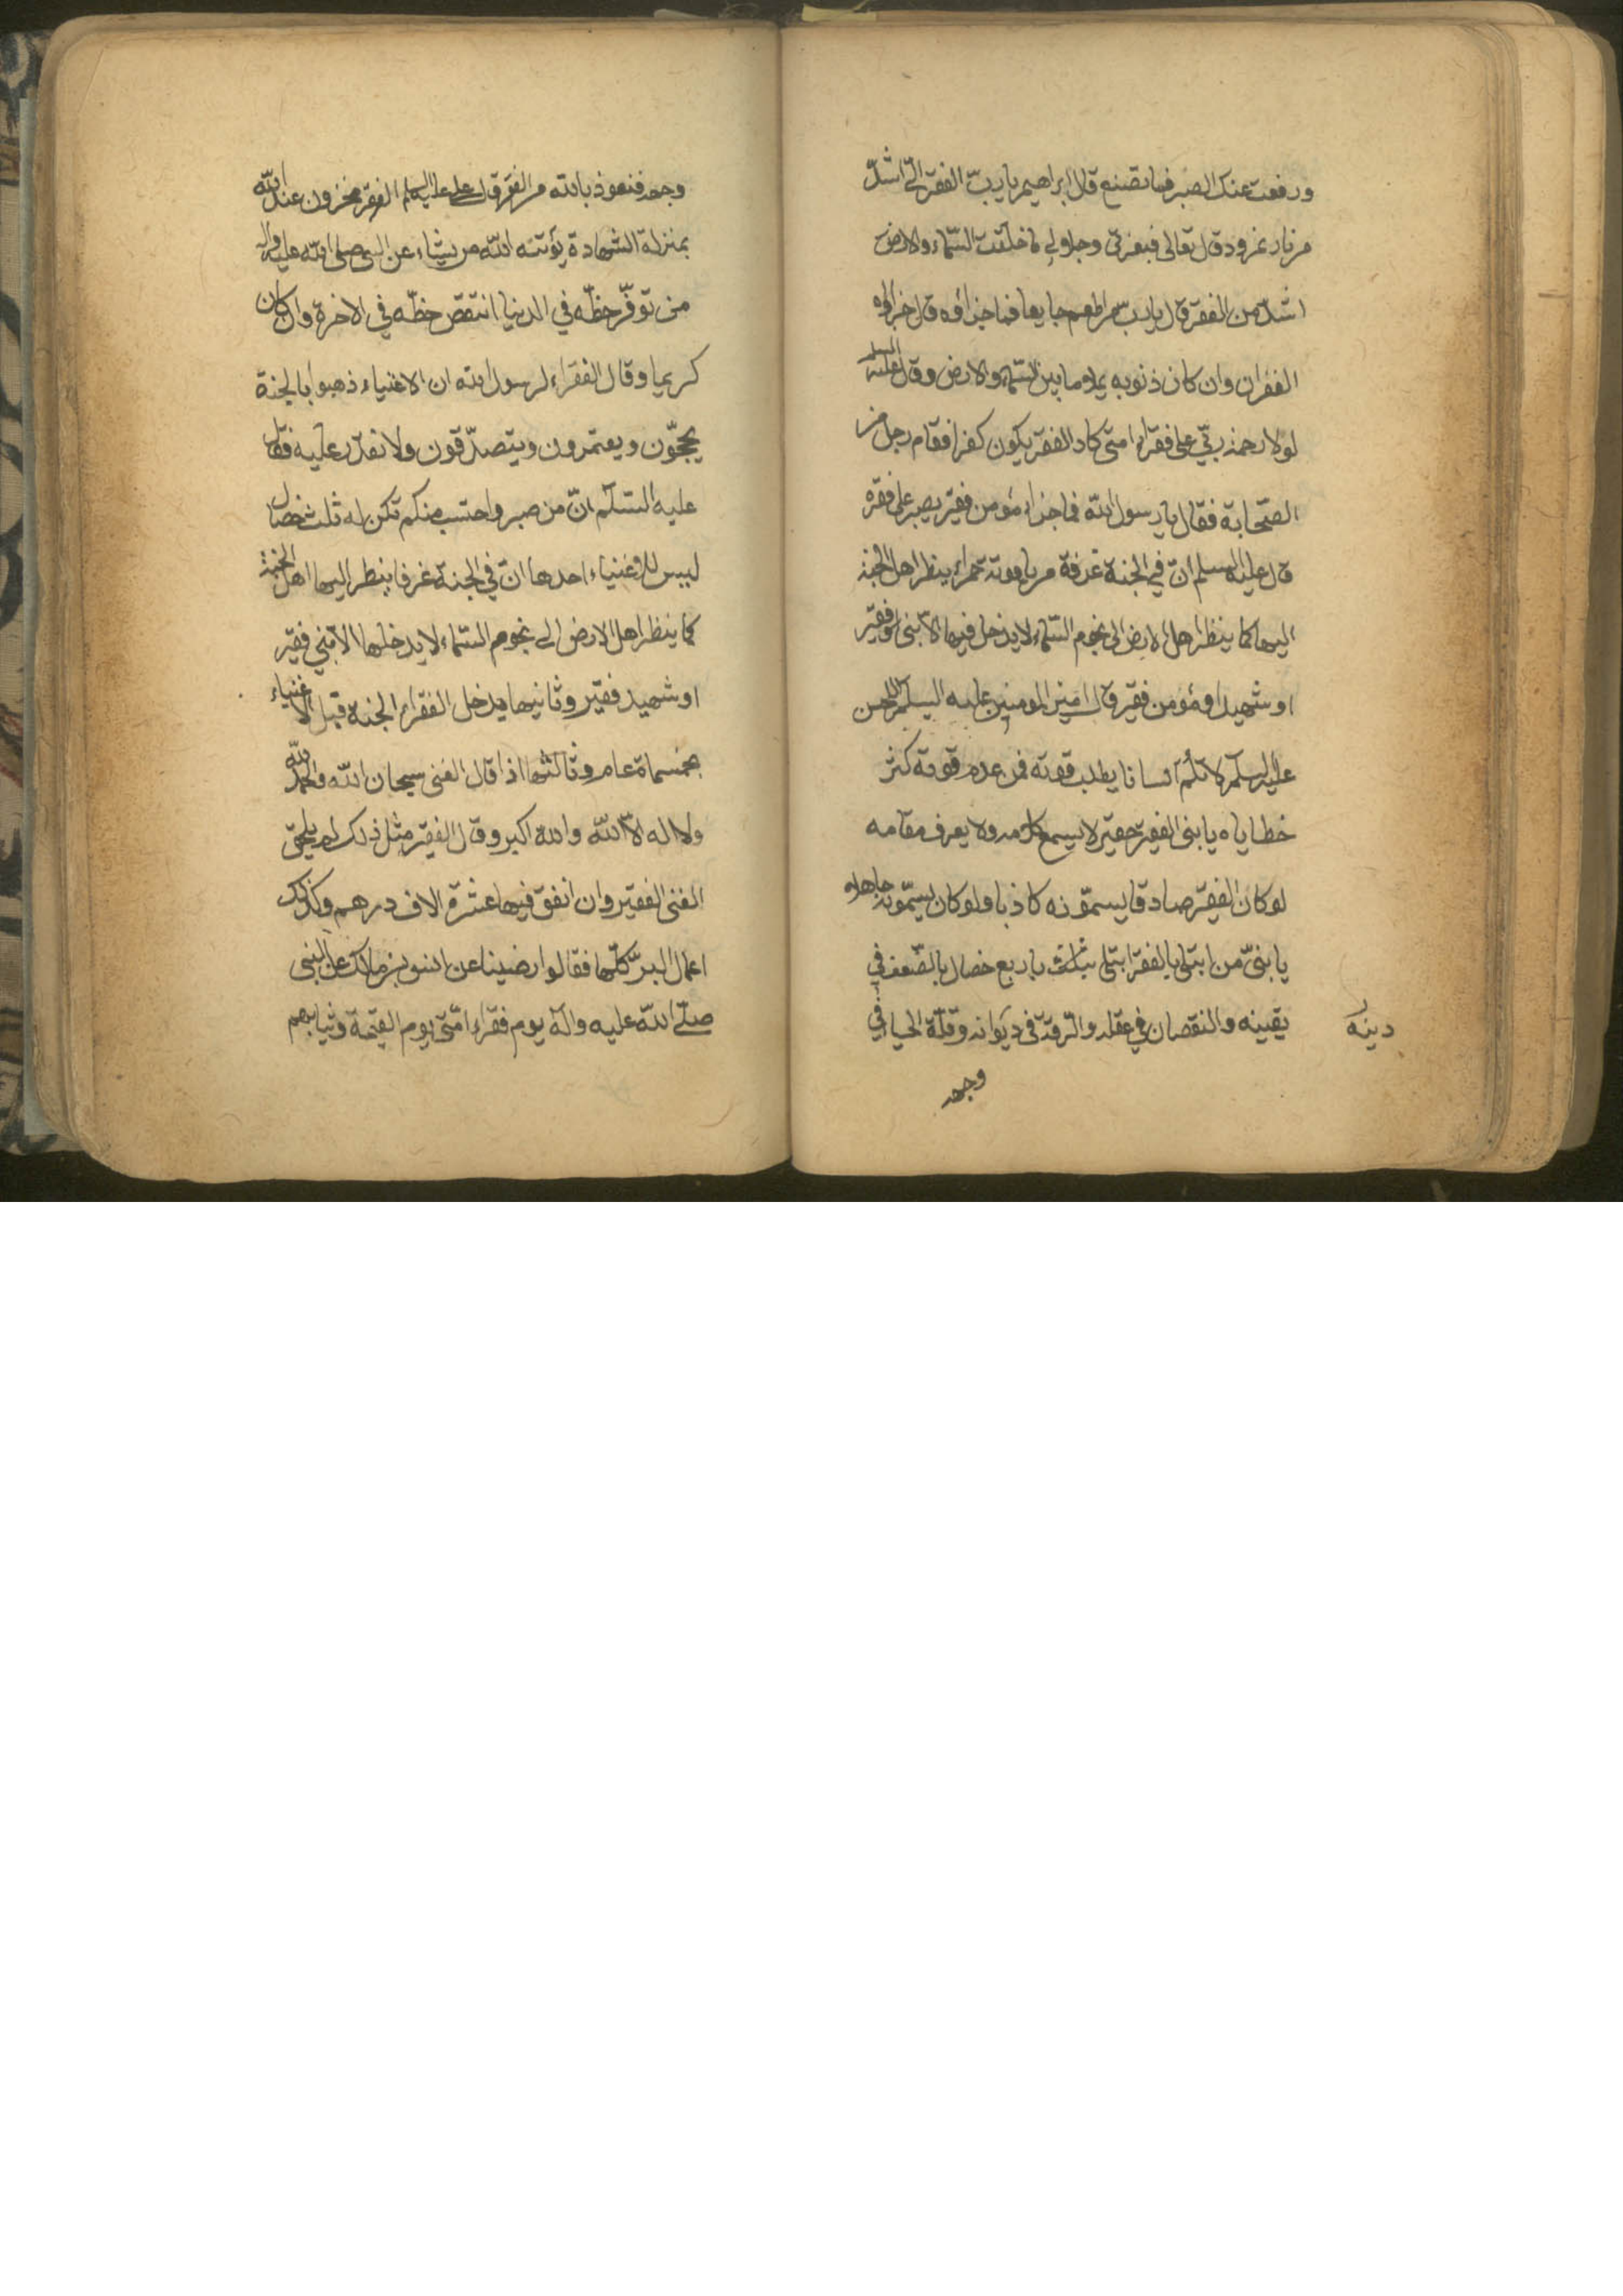 ورفعت عنك الصبر فما تصنع قال ابراهيم يا ربّ الفقر الىّ اشدّ
من نار نمرود قال تعالى فبعزتى وجلالى ما خلقت السّماء والارض
اشدّ من الفقر قال يا ربّ من اطعم جايعا فما جزاؤه قال جزاؤه
الغفران وان كان ذنوبه يملو ما بين السّماء والارض وقال عليه السلم
لولا رحمة ربّي على فقراء امتى كاد الفقر يكون كفرا فقام رجل من
الصّحابة فقال يا رسول الله فما جزاء مؤمن فقير يصبر على فقره
قال عليه السلم انّ في الجنة غرفة من ياقوتة حمراء ينظر اهل الجنة
اليها كما ينظر اهل الارض الى نجوم السّماء لا يدخل فيها الاّ نبى فقير
او شهيد او مؤمن فقير قال امير المومنين عليه السلم للحسن
عليه السلم لا تلم انسانا يطلب قوته فمن عدم قوته كثر
خطاياه يا بنى الفقير حقير لا يسمع كلامه ولا يعرف مقامه
لو كان الفقير صادقا يسمّونه كاذبا ولو كان يسمّونه جاهلا
يا بنىّ من ابتلى بالفقر ابتلى باربع خصال بالضّعف في
يقينه والنقصان في عقله والرقّة فى ديوانه وقلّة الحياء في
دينه
وجهه
وجهه فنعوذ بالله من الفقر قال على عليه السلم الفقر مخزون عند الله
بمنزلة الشهادة يؤتيه الله من يشاء عن النبى صلى الله عليه واله
من توفّر حظّه في الدنيا انتقص حظّه في الاخرة وان كان
كريما وقال الفقراء لرسول الله ان الاغنياء ذهبوا بالجنة
يحجّون ويعتمرون ويتصدّقون ولا نقدر عليه فقال
عليه السّلم انّ من صبر واحتسب منكم تكن له ثلث خصال
ليس للاغنياء احدها انّ في الجنة غرفا ينظر اليها اهل الجنة
كما ينظر اهل الارض الى نجوم السّماء لا يدخلها الا نبي فقير
او شهيد فقير وثانيها يدخل الفقراء الجنة قبل الاغنياء
بخمسماة عام وثالثها اذا قال الغنى سبحان الله والحمد لله
ولا اله الاّ الله والله اكبر وقال الفقير مثل ذلك لم يلحق
الغنى الفقير وان انفق فيها عشرة الاف درهم وكذلك
اعمال البرّ كلّها فقالوا رضينا عن انس بن مالك عن النبى
صلّى الله عليه وآله يوم فقراء امّتى يوم القيمة وثيابهم